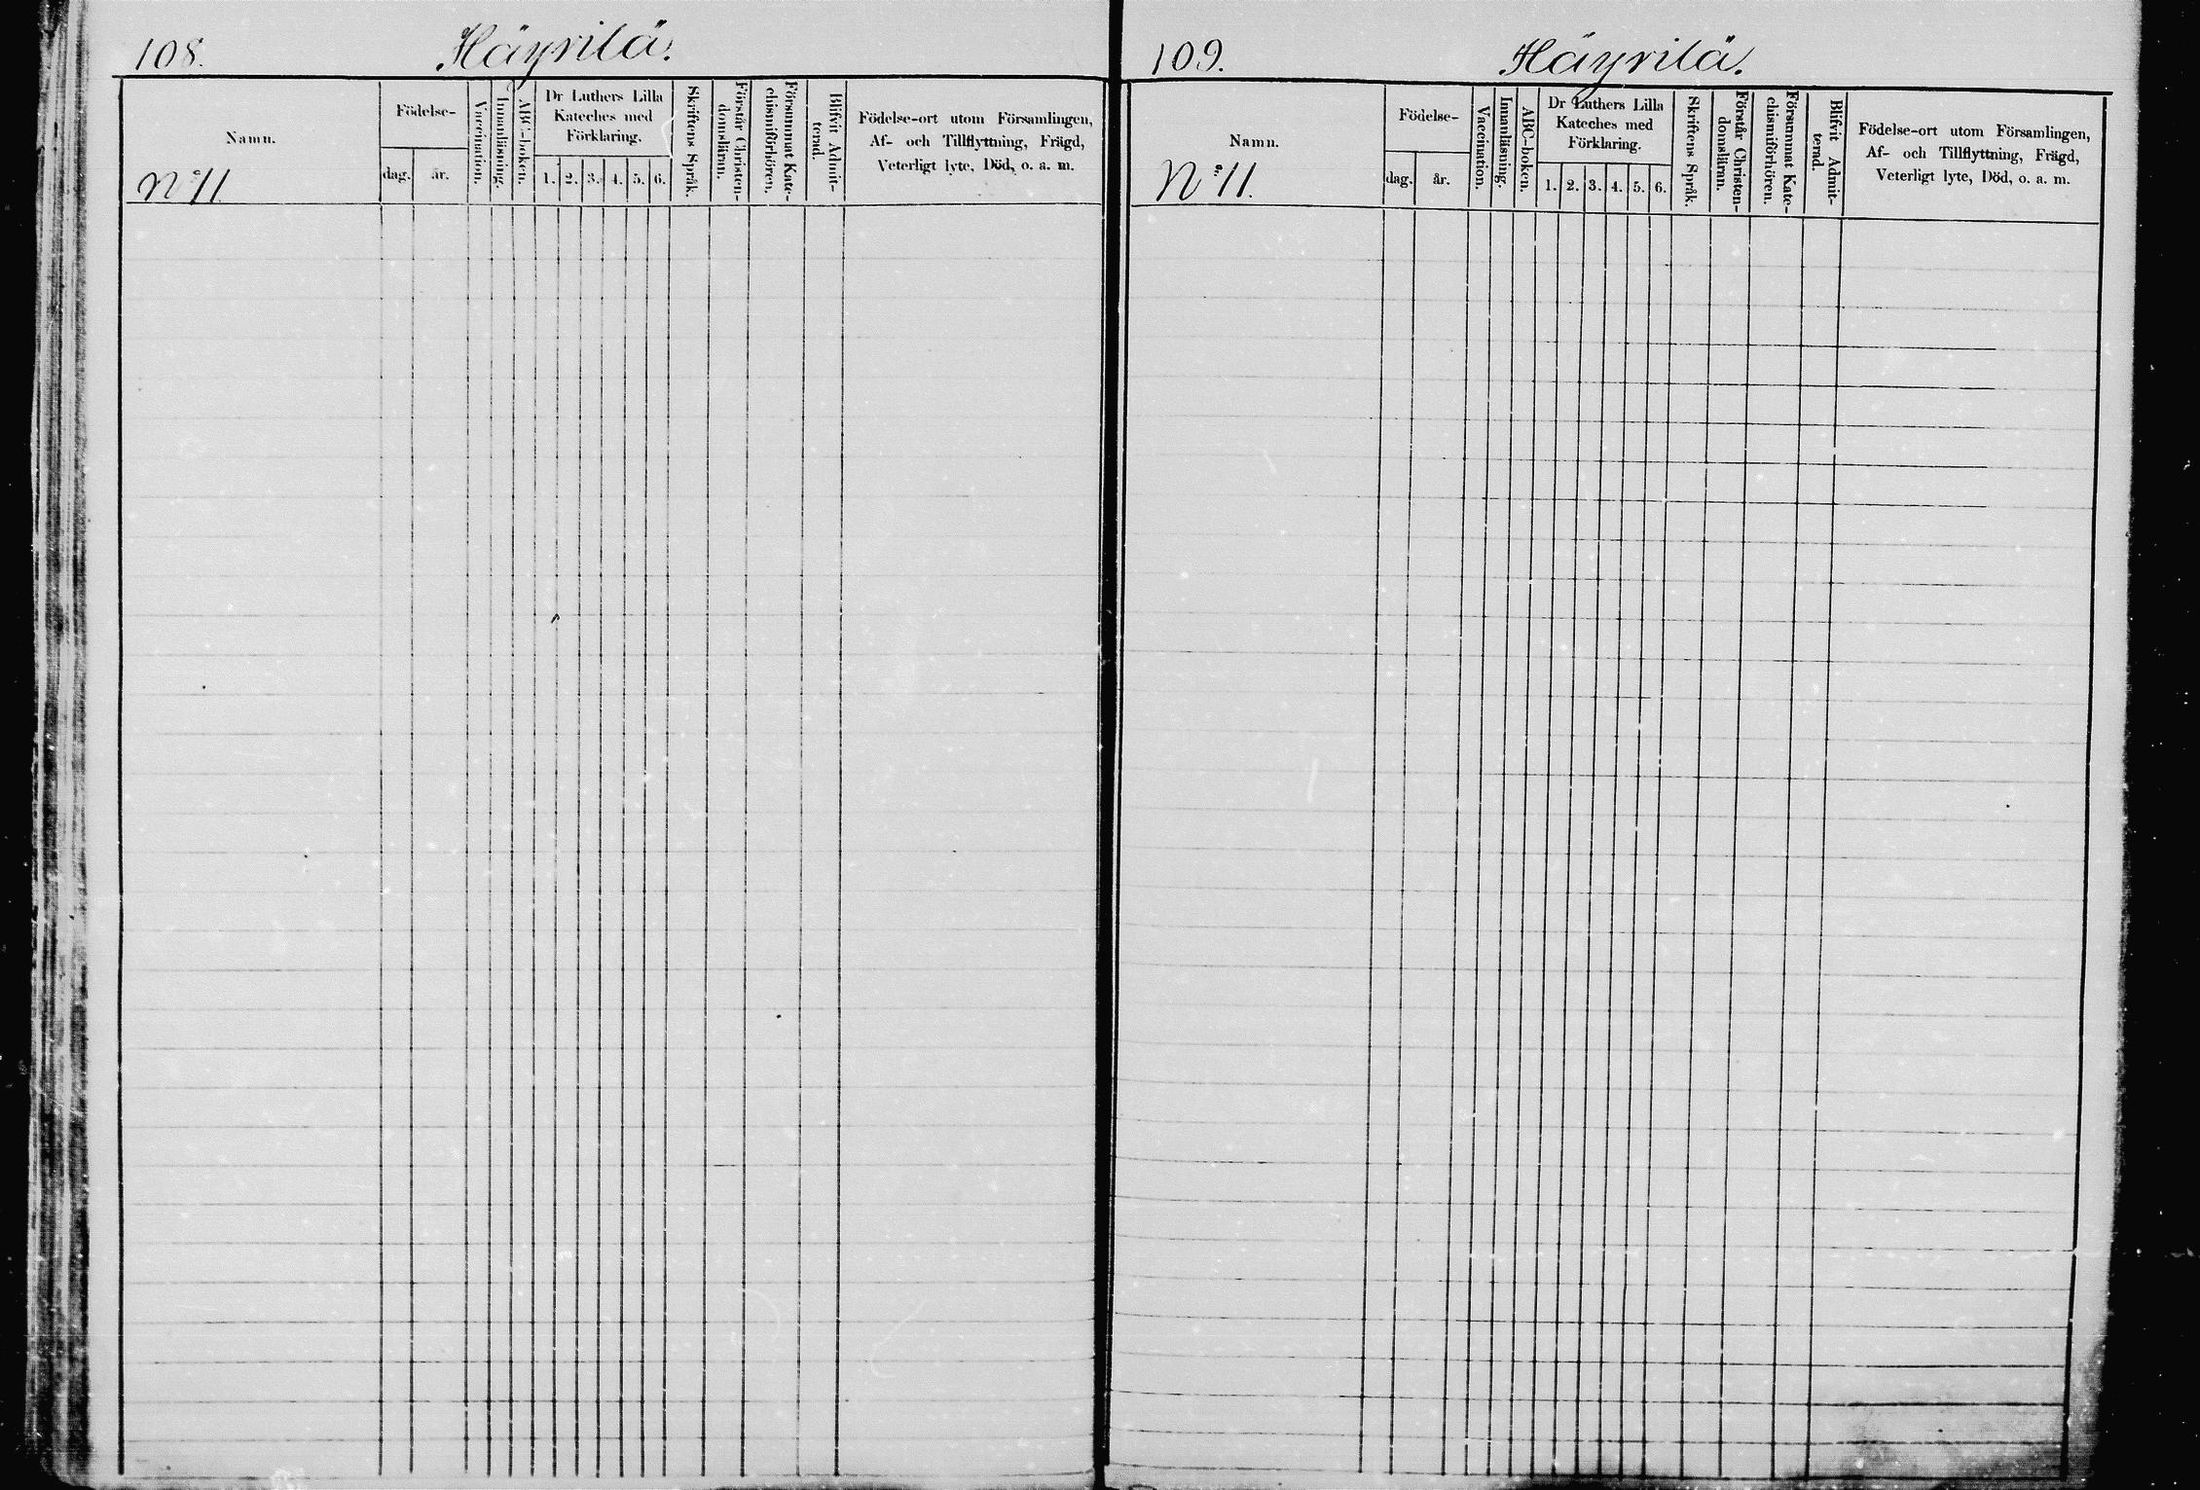 108. Häyrilä.
Namn.
Födelse-
dag. år.
Vaccination.
Innanläsning.
ABC-boken.
Dr Luthers Lilla
Kateches med
Förklaring.
1. 2. 3. 4. 5. 6.
Skriftens Språk.
Förstår Christen-
domsläran.
Försummat Kate-
chismiförhören.
Blifvit Admit-
terad.
Födelse-ort utom Församlingen,
Af- och Tillflyttning, Frägd,
Veterligt lyte, Död, o. a. m.
No 11
109. Häyrilä.
Namn.
Födelse-
dag. år.
Vaccination.
Innanläsning.
ABC-boken.
Dr Luthers Lilla
Kateches med
Förklaring.
1. 2. 3. 4. 5. 6.
Skriftens Språk.
Förstår Christen-
domsläran.
Försummat Kate-
chismiförhören.
Blifvit Admit-
terad.
Födelse-ort utom Församlingen,
Af- och Tillflyttning, Frägd,
Veterligt lyte, Död, o. a. m.
No 11.